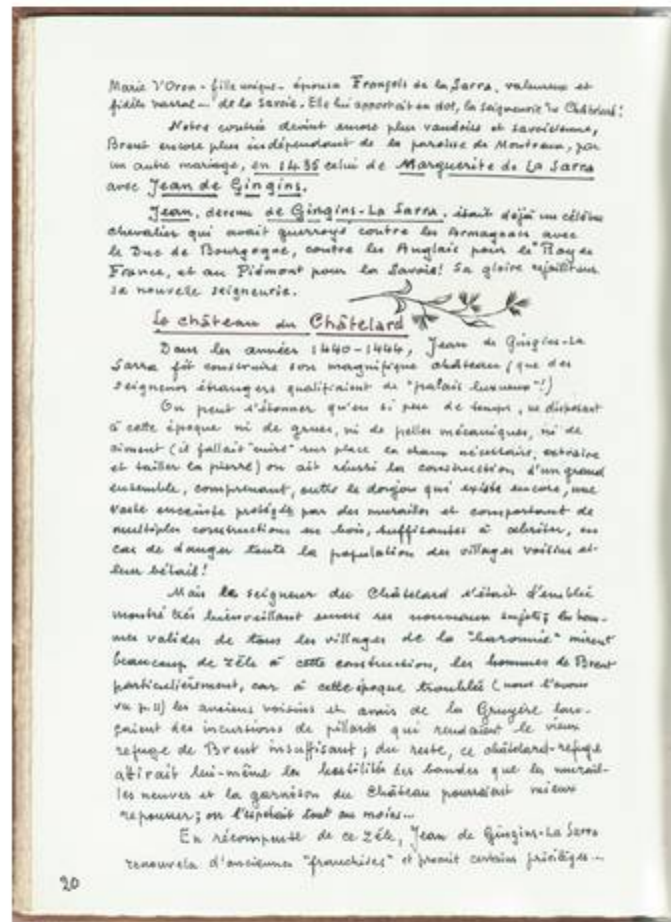 Marie d'Oron - fille unique - épousa François de la Sarra, valeureux et
fidèle vassal... de la Savoie. Elle lui apportait en dot, la seigneurie du Châtelard!
Notre contrée devint encore plus vaudoise et savoisienne,
Brent encore plus indépendant de la paroisse de Montreux, par
un autre mariage, en 1435 celui de Marguerite de La Sarra
avec Jean de Gingins.
Jean, devenu de Gingins-La Sarra, était déjà un célèbre
chevalier qui avait guerroyé contre les Armagnacs avec
le Duc de Bourgogne, contre les Anglais pour le Roy de
France, et au Piémont pour la Savoie! Sa gloire
sa nouvelle seigneurie.
Le château du Châtelard
Dans les années 1440-1444, Jean de Gingins-La
Sarra fit construire son magnifique château (que des
seigneurs étrangers qualifiaient de "palais luxueux"!)
On peut s'étonner qu'en si peu de temps, ne disposant
à cette époque ni de grues, ni de pelles mécaniques, ni de
ciment (il fallait "cuire" sur place la chaux nécessaire, extraire
et tailler la pierre) on ait réussi la construction d'un grand
ensemble, comprenant, outre le donjon qui existe encore, une
vaste enceinte protégée par des murailles et comportant de
multiples constructions en bois, suffisantes à abriter, en
cas de danger toute la population des villages voisins et
leur bétail!
Mais le seigneur du Châtelard s'était d'emblée
montré très bienveillant envers ses nouveaux sujets; les hom-
mes valides de tous les villages de la "baronnie" mirent
beaucoup de zèle à cette construction, les hommes de Brent
particulièrement, car à cette époque troublée (nous l'avons
vu p.11) les anciens voisins et amis de la Gruyère lan-
çaient des incursions de pillards qui rendaient le vieux
refuge de Brent insuffisant; du reste, ce châtelard-refuge
attirait lui-même les hostilités des bandes que les murail-
les neuves et la garnison du Château pourraient mieux
repousser; on l'espérait tout au moins...
En récompense de ce zèle, Jean de Gingins-La Sarra
renouvela d'anciennes "franchises" et promit certains privilèges...
20